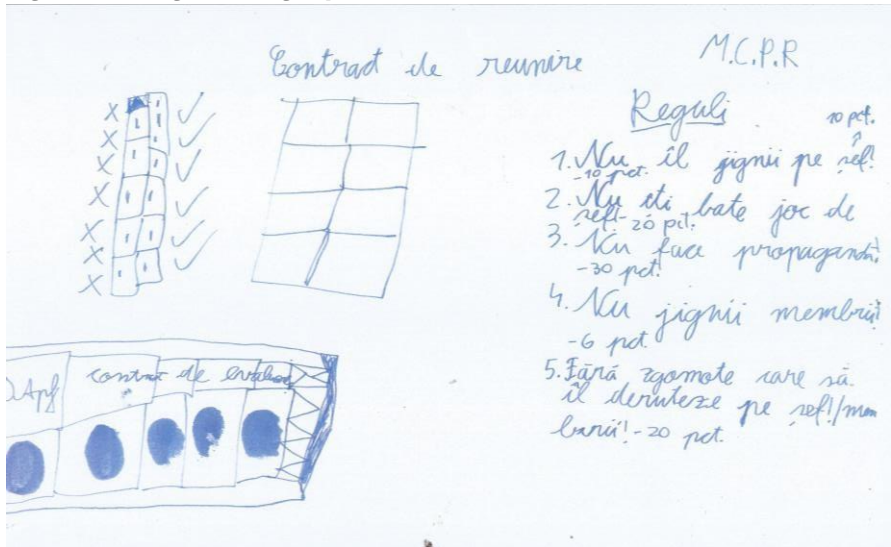 Contract de reunire
M.C.P.R
Reguli
10 pct.
1. Nu îl jignii pe șef!
-10 pct.
2. Nu îți bate joc de
șef! - 20 pct.
3. Nu face propagandă!
-30 pct!
4. Nu jignii membrii!
-6 pct
5. Fără zgomote care să
îl deruteze pe șef!/mem
brii! -20 pct.
contract de